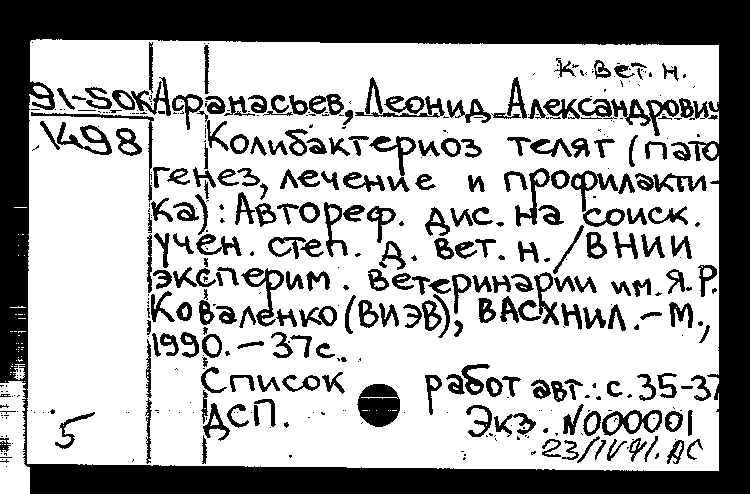 к. вет. н.
91-50к Афанасьев, Леонид Александрович
1498 Колибактериоз телят (пато
генез, лечение и профилакти-
ка): Автореф. дис. на соиск.
учен. степ. д. вет. н. / ВНИИ
эксперим. ветеринарии им. Я. Р.
Коваленко (ВИЭВ), ВАСХНИЛ. - М.,
1990. - 37с.
Список работ авт.: с. 35-37
ДСП. Экз. N000001
5 23/IV 91. АС